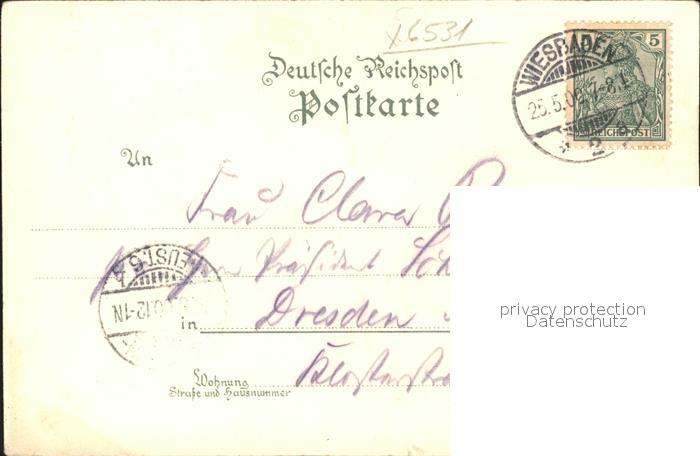 X6531
Deutsche Reichspost
Postkarte
WIESBADEN
25.5.0 7-8
* 2
5
REICHSPOST
An
Frau Clara
Präsident
NEUST. 5
12-1N
in Dresden
Wohnung
Straße und Hausnummer
privacy protection
Datenschutz